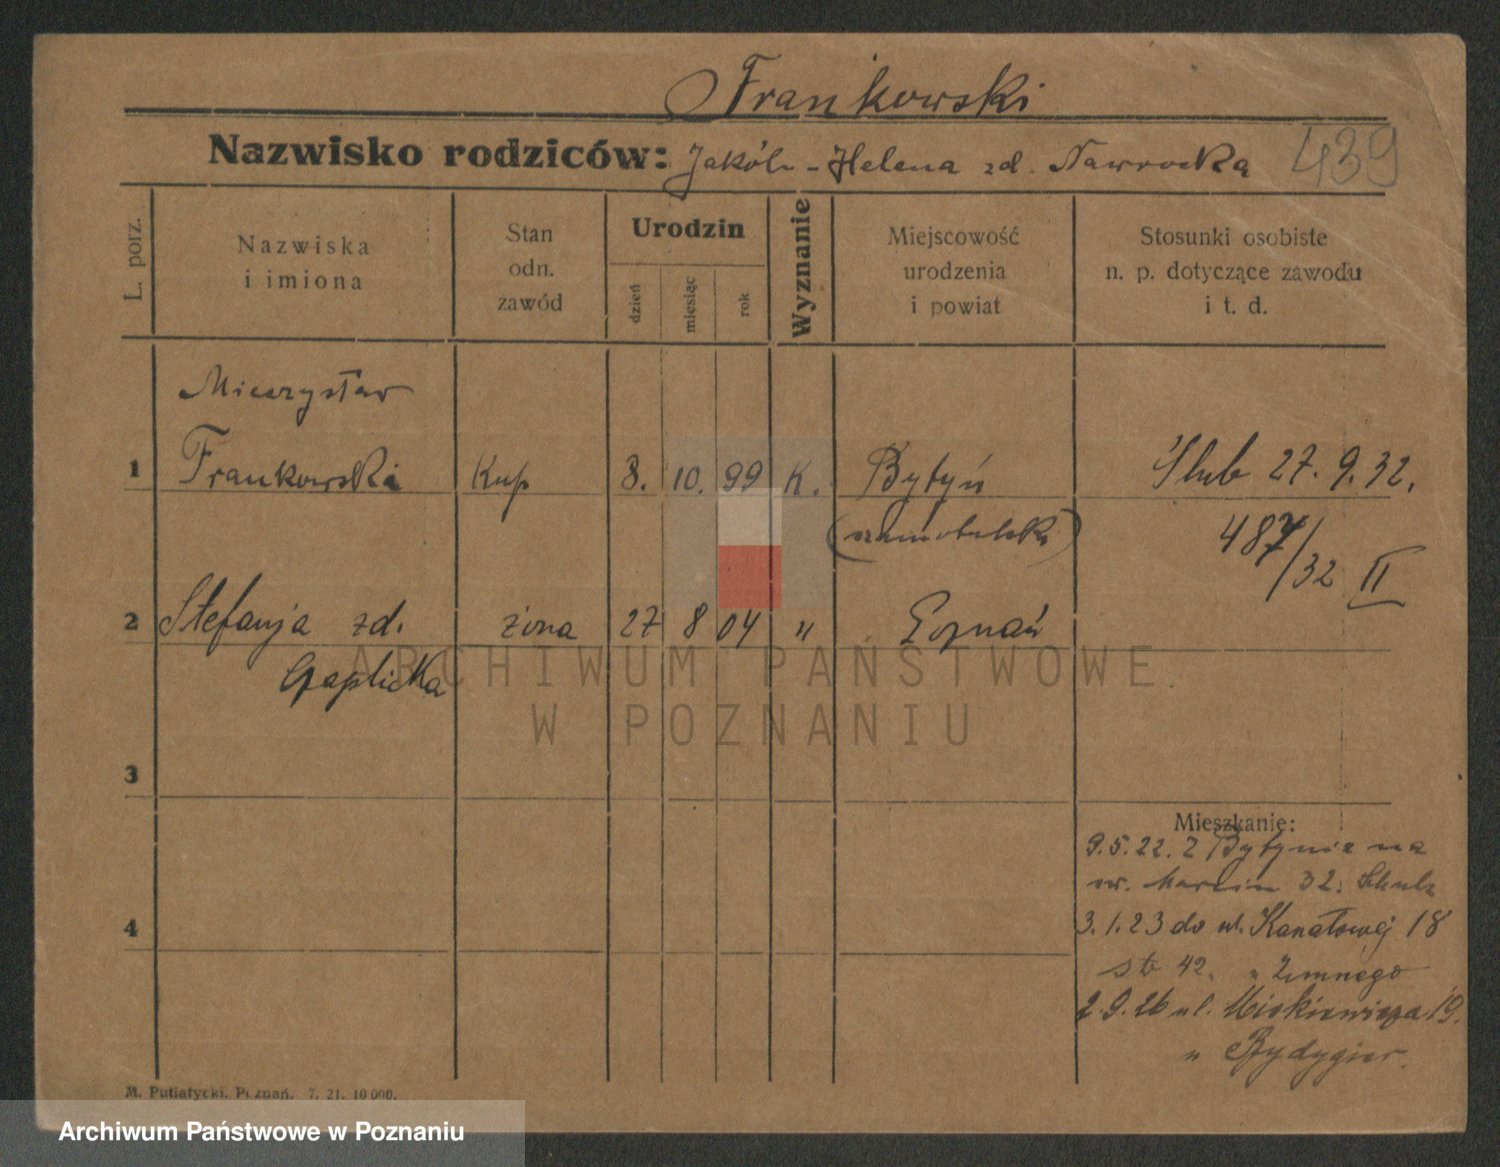 Frankowski
Nazwisko rodziców: Jakób - Helena zd. Nawrocka 439
L. porz.
Nazwiska
i imiona
Stan
odn.
zawód
Urodzin
dzień
miesiąc
rok
Wyznanie
Miejscowość
urodzenia
i powiat
Stosunki osobiste
n. p. dotyczące zawodu
i t. d.
Mieczysław
1 Frankowski Kup 8. 10. 99 K. Bytyń Ślub 27. 9. 32.
(szamotulski) 487/32 II
2 Stefanja zd. żona 27 8 04 " Poznań
Gaplicka
ARCHIWUM PAŃSTWOWE
W POZNANIU
3
Mieszkanie:
9.5.22. z Bytynia na
św. Marcin 32.
4
3.1.23 do ul. Kanałowej 18
42. u Zimnego
2.9.26 ul. Mickiewicza 19.
u Rydygier.
M. Putiatycki, Poznań. 7. 21. 10 000.
Archiwum Państwowe w Poznaniu